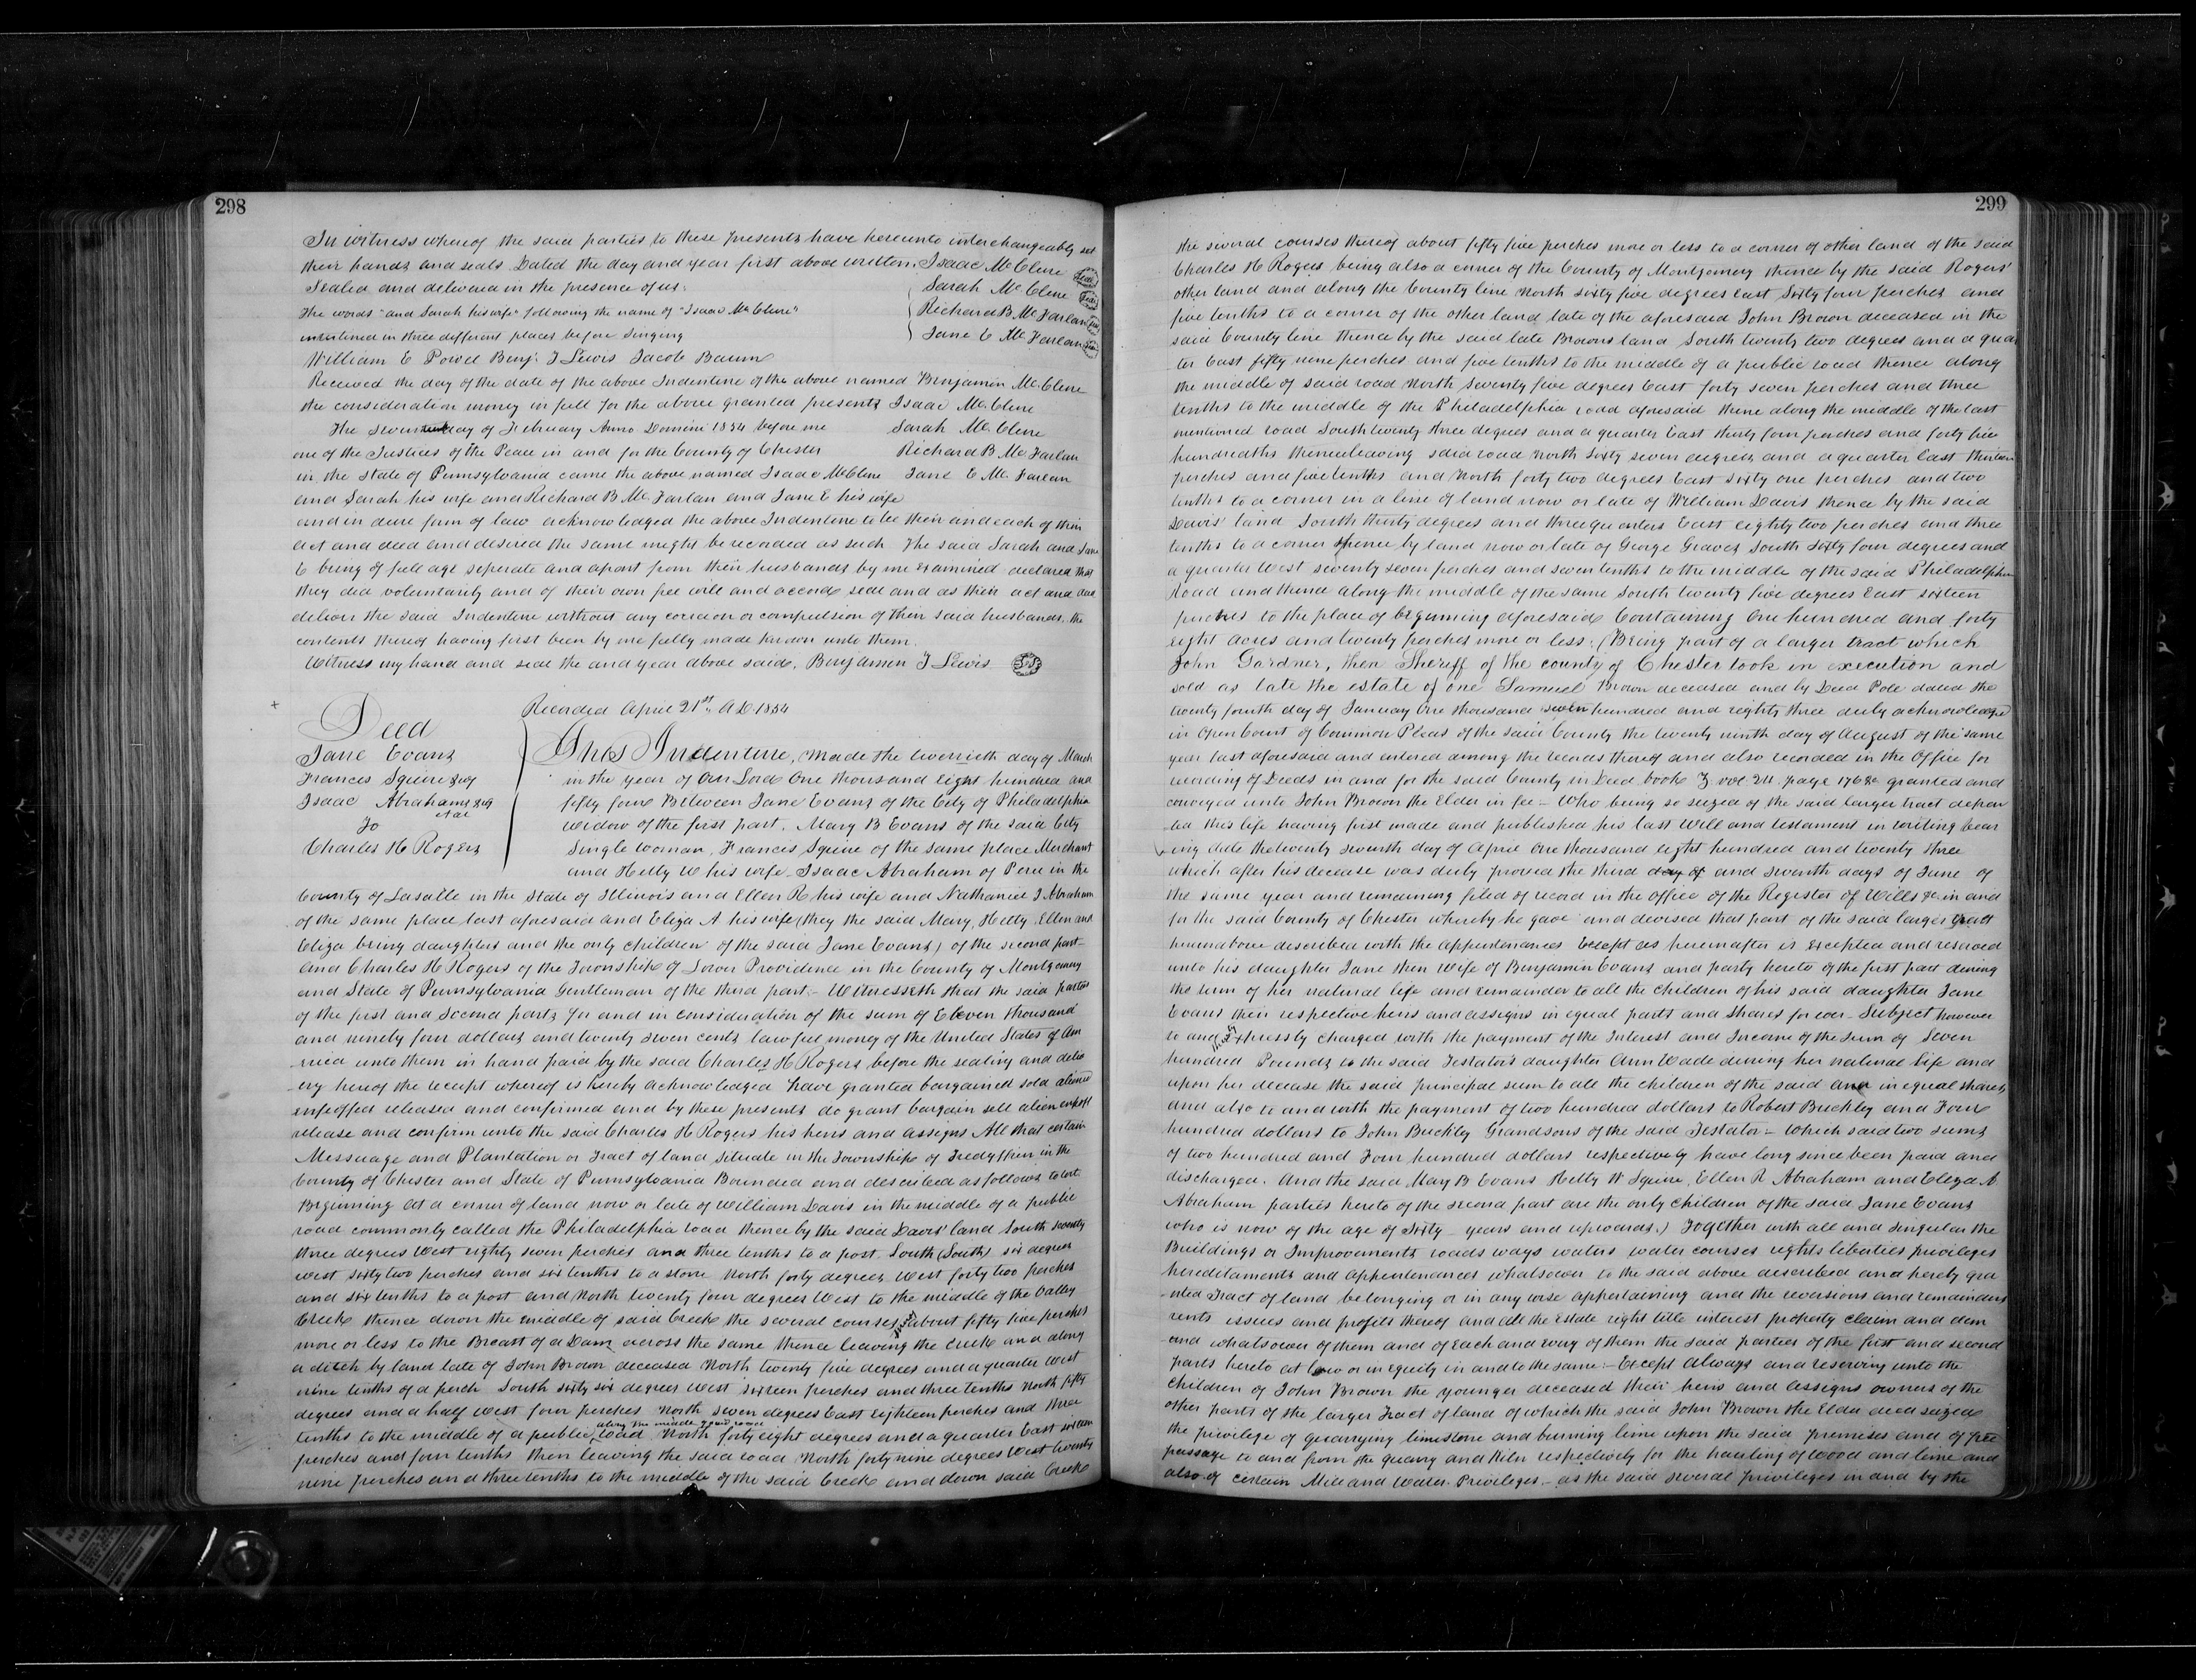 298
In witness whereof the said parties to these presents have hereunto interchangeably set
their hands and seals Dated the day and year first above written. Isaac McClene Seal
Sealed and delivered in the presence of us. Sarah McClene Seal
The words "and Sarah his wife" following the name of "Isaac McClene" Richard B. McFarlan Seal
interlined in three different places before signing Jane E McFarlan Seal
William E Powel Benj. F Lewis Jacob Baum
Received the day of the date of the above Indenture of the above named Benjamin McClene
the consideration money in full for the above granted presents Isaac McClene
The seventh day of February Anno Domini 1854 before me Sarah McClene
one of the Justices of the Peace in and for the County of Chester Richard B McFarlan
in the State of Pennsylvania came the above named Isaac McClene Jane E McFarlan
and Sarah his wife and Richard B McFarlan and Jane E his wife
and in due form of law acknowledged the above Indenture to be their and each of their
act and deed and desired the same might be recorded as such The said Sarah and Jane
E being of full age seperate and apart from their husbands by me examined declared that
they did voluntarily and of their own free will and accord seal and as their act and deed
deliver the said Indenture without any coercion or compulsion of their said husbands. the
contents thereof having first been by me fully made known unto them.
Witness my hand and seal the and year above said. Benjamin F Lewis
Recorded April 21st. A.D. 1854
Deed
Jane Evans
Frances Squire &
Isaac Abraham &
et al
To
Charles H Rogers
This Indenture, Made the twentieth day of March
in the year of Our Lord One thousand Eight hundred and
fifty four Between Jane Evans of the City of Philadelphia
widow of the first part. Mary B Evans of the said City
Single woman, Frances Squire of the same place Merchant
and Hetty W his wife Isaac Abraham of Peru in the
County of Lasalle in the State of Illinois and Ellen R his wife and Nathaniel J Abraham
of the same place last aforesaid and Eliza A his wife (they the said Mary, Hetty, Ellen and
Eliza being daughters and the only children of the said Jane Evans) of the second part
and Charles H Rogers of the Township of Lower Providence in the County of Montgomery
and State of Pennsylvania Gentleman of the third part:- Witnesseth that the said parties
of the first and second parts for and in consideration of the sum of Eleven thousand
and ninety four dollars and twenty seven cents lawful money of the United States of Am
erica unto them in hand paid by the said Charles H Rogers before the sealing and deliv
ery hereof the receipt whereof is hereby acknowledged have granted bargained sold aliened
enfeoffed released and confirmed and by these presents do grant bargain sell alien enfeoff
release and confirm unto the said Charles H Rogers his heirs and assigns All that certain
Messuage and Plantation or Tract of land situate in the Township of Tredyffrin in the
County of Chester and State of Pennsylvania Bounded and described as follows to wit
Beginning at a corner of land now or late of William Davis in the middle of a public
road commonly called the Philadelphia road thence by the said Davis' land South seventy
three degrees West eighty seven perches and three tenths to a post. South (South) six degrees
west sixty two perches and six tenths to a stone North forty degrees West forty two perches
and six tenths to a post and North twenty four degrees West to the middle of the Valley
Creek thence down the middle of said Creek the several courses thereof about fifty five perches
more or less to the Breast of a Dam across the same thence leaving the Creek and along
a ditch by land late of John Brown deceased North twenty five degrees and a quarter West
nine tenths of a perch South sixty six degrees West sixteen perches and three tenths North fifty
degrees and a half West four perches North seven degrees East Eighteen perches and three
along the middle of said road
tenths to the middle of a public road North forty eight degrees and a quarter East sixteen
perches and four tenths then leaving the said road North forty nine degrees West twenty
nine perches and three tenths to the middle of the said Creek and down said Creek
299
the several courses thereof about fifty five perches more or less to a corner of other land of the said
Charles H Rogers being also a corner of the County of Montgomery thence by the said Rogers'
other land and along the County line North sixty five degrees East Sixty four perches and
five tenths to a corner of the other land late of the aforesaid John Brown deceased in the
said County line thence by the said late Browns land South twenty two degrees and a quar
ter East fifty nine perches and five tenths to the middle of a public road thence along
the middle of said road North Seventy five degrees East forty seven perches and three
tenths to the middle of the Philadelphia road aforesaid thence along the middle of the last
mentioned road South twenty three degrees and a quarter East thirty four perches and forty five
hundredths thence leaving said road North Sixty seven degrees and a quarter East thirteen
perches and five tenths and North forty two degrees East sixty one perches and two
tenths to a corner in a line of land now or late of William Davis thence by the said
Davis' land South thirty degrees and three quarters East eighty two perches and three
tenths to a corner thence by land now or late of George Graves South Sixty four degrees and
a quarter West seventy seven perches and seven tenths to the middle of the said Philadelphia
Road and thence along the middle of the same South twenty five degrees East sixteen
perches to the place of beginning aforesaid Containing One hundred and forty
eight acres and twenty perches more or less. (Being part of a larger tract which
John Gardner, then Sheriff of the county of Chester took in execution and
sold as late the estate of one Samuel Brown deceased and by Deed Pole dated the
twenty fourth day of January One thousand seven hundred and eighty three duly acknowledged
in Open Court of Common Pleas of the said County the twenty ninth day of August of the same
year last aforesaid and entered among the records thereof and also recorded in the Office for
recording of Deeds in and for the said County in Deed book Z vol 24 page 176 &c granted and
conveyed unto John Brown the Elder in fee - Who being so seized of the said larger tract depar
ted this life having first made and published his last Will and testament in writing bear
ing date the twenty seventh day of April One thousand eight hundred and twenty three
which after his decease was duly proved the third day of and seventh days of June of
the same year and remaining filed of record in the Office of the Register of Wills &c in and
for the said County of Chester whereby he gave and devised that part of the said larger tract
hereinabove described with the appurtenances Except as hereinafter is Excepted and reserved
unto his daughter Jane then Wife of Benjamin Evans and party hereto of the first part during
the term of her natural life and remainder to all the children of his said daughter Jane
Evans their respective heirs and assigns in equal parts and shares forever - Subject however
to and expressly charged with the payment of the Interest and Income of the Sum of Seven
hundred Pounds to the said Testator's daughter Ann Wade during her natural life and
upon her decease the said principal sum to all the children of the said Ann in equal shares,
and also to and with the payment of two hundred dollars to Robert Buckley and Four
hundred dollars to John Buckley Grandsons of the said Testator:- Which said two sums
of two hundred and Four hundred dollars respectively have long since been paid and
discharged. And the said Mary B Evans Hetty W Squire, Ellen R Abraham and Eliza A
Abraham parties hereto of the second part are the only children of the said Jane Evans
who is now of the age of Sixty years and upwards.) Together with all and singular the
Buildings or Improvements roads ways waters water courses rights liberties privileges
hereditaments and appurtenances whatsoever to the said above described and hereby gra
nted Tract of land belonging or in any wise appertaining and the reversions and remainders
rents issues and profits thereof and all the Estate right title interest property claim and dem
and whatsoever of them and of Each and every of them the said parties of the first and second
parts hereto at law or in equity in and to the same:- Except Always and reserving unto the
children of John Brown the younger deceased their heirs and assigns owners of the
other parts of the larger Tract of land of which the said John Brown the Elder died seized
the privilege of quarrying limestone and burning lime upon the said premises and of free
passage to and from the quarry and Kiln respectively for the hauling of wood and lime and
also of certain Mill and Water Privileges - as the said several privileges in and by the